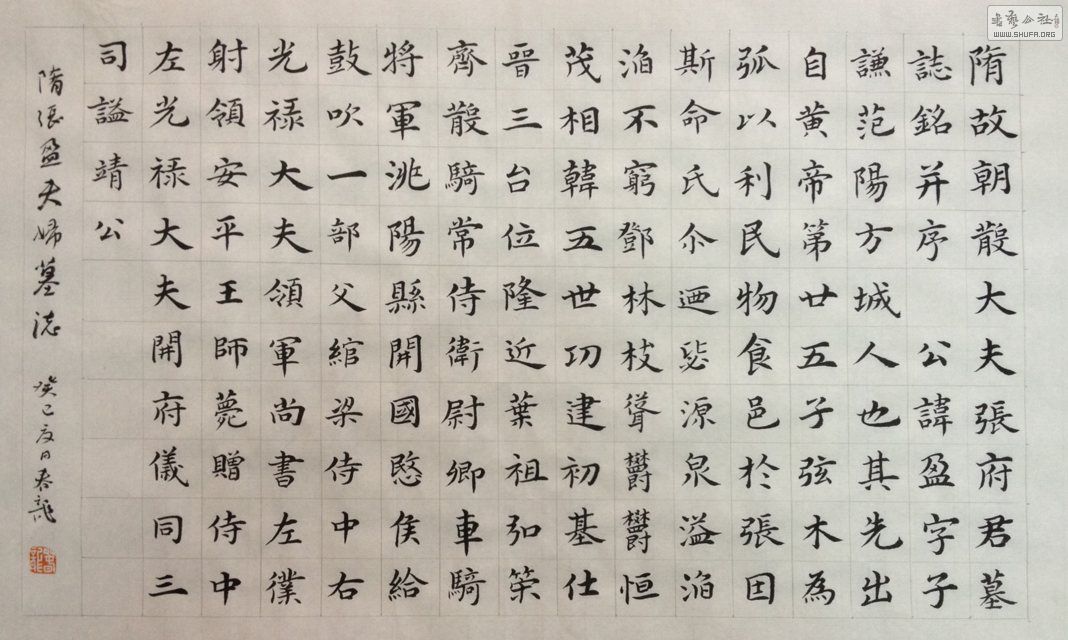 隋故朝散大夫張府君墓
誌銘并序 公諱盈字子
謙范陽方城人也其先出
自黄帝第廿五子弦木為
弧以利民物食邑於張因
斯命氏尒迺毖源泉溢滔
滔不窮鄧林枝聳欝欝恒
茂相韓五世功建初基仕
晉三台位隆近葉祖弘策
齊散騎常侍衛尉卿車騎
將軍洮陽縣開國愍侯給
鼓吹一部父綰梁侍中右
光禄大夫領軍尚書左僕
射領安平王師薨贈侍中
左光禄大夫開府儀同三
司謚靖公
隋張盈夫婦墓誌 癸巳夏日春龍
書藝公社
WWW.SHUFA.ORG